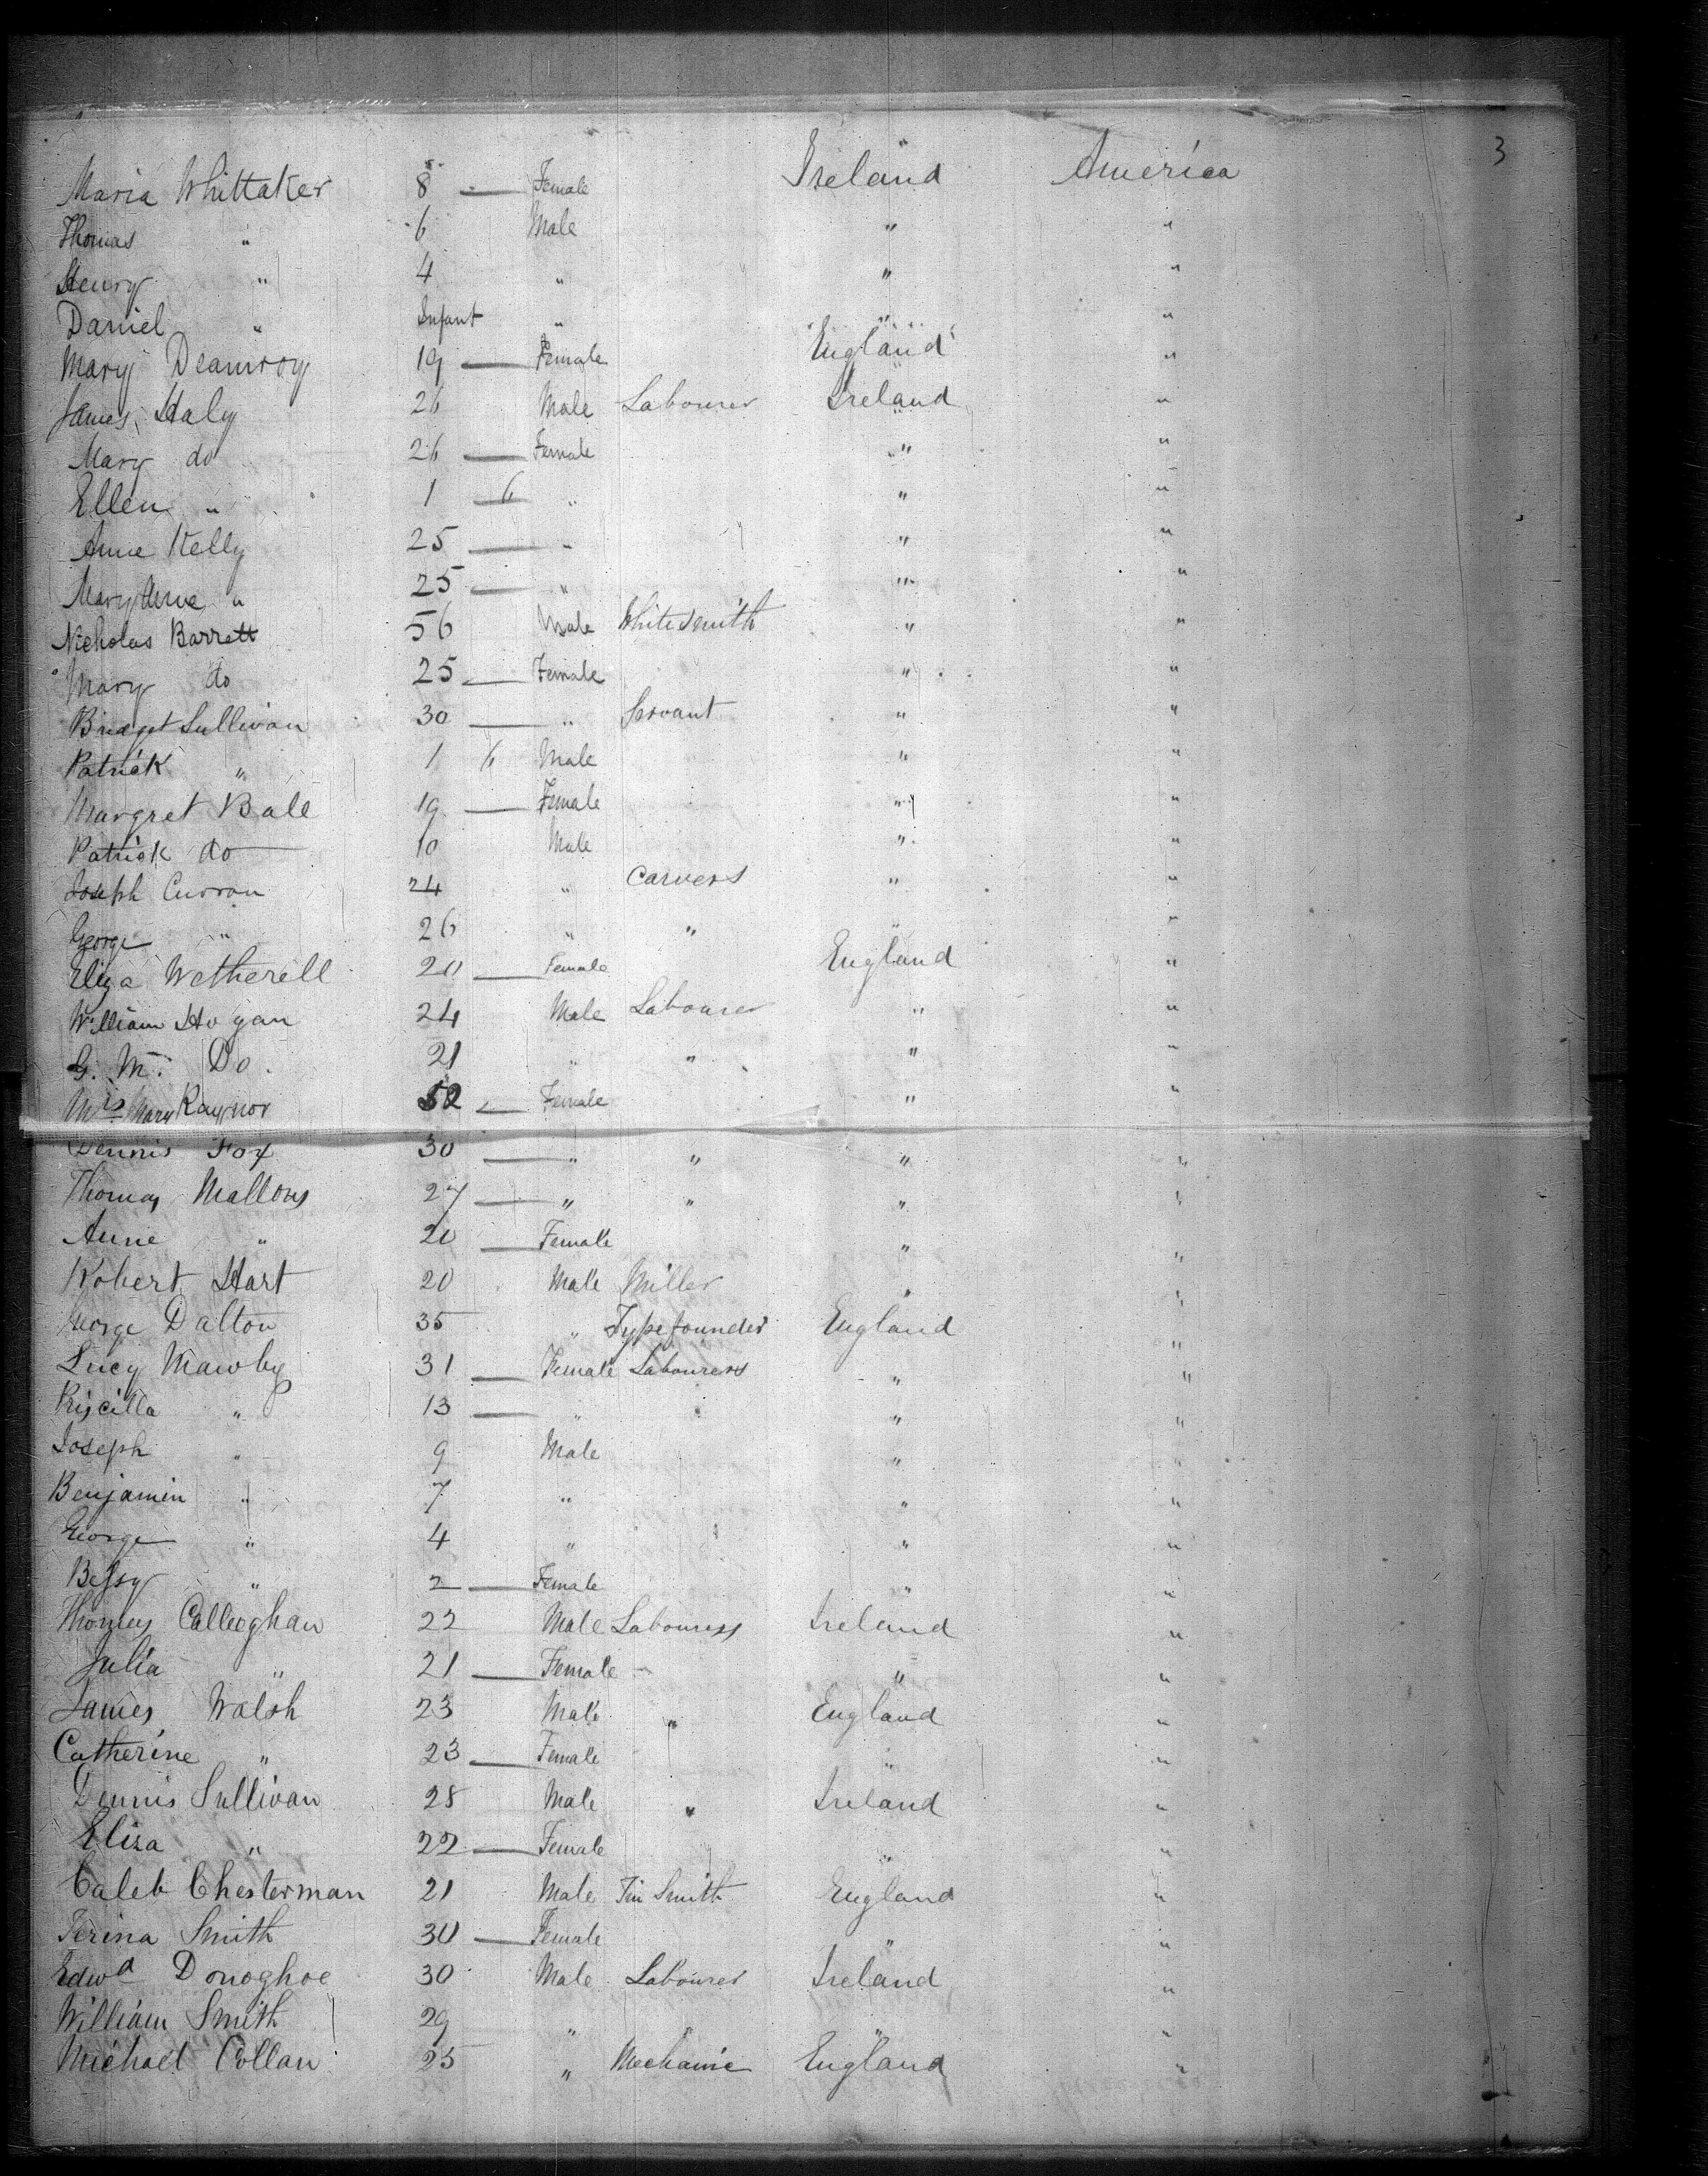 3
Maria Whittaker 8 — Female Ireland America
Thomas " 6 Male " "
Henry " 4 " " "
Daniel " Infant " " "
Mary Deamroy 19 — Female England "
James Haly 26 Male Labourer Ireland "
Mary do 26 — Female " "
Ellen " 1 — 6 " " "
Anne Kelly 25 — " " "
Mary Anne " 25 — " " "
Nicholas Barrett 56 Male Whitesmith " "
Mary do 25 — Female " "
Bridget Sullivan 30 — " Servant " "
Patrick " 1 6 Male " "
Margret Bale 19 — Female " "
Patrick do 10 Male " "
Joseph Curran 24 " Carvers " "
George " 26 " " " "
Eliza Wetherell 20 — Female England "
William Hogan 24 Male Labourer " "
G. M. Do. 21 " " " "
Mrs Mary Raynor 52 — Female " "
Dennis Fox 30 — " " " "
Thomas Mallons 27 — " " " "
Anne " 20 — Female " "
Robert Hart 20 Male Miller " "
George Dalton 35 " Typefounder England "
Lucy Mawby 31 — Female Labourers " "
Priscilla " 13 — " " "
Joseph " 9 Male " "
Benjamin " 7 " " "
George " 4 " " "
Bessy " 2 — Female " "
Thomas Calleoghan 22 Male Labourers Ireland "
Julia " 21 — Female " "
James Walsh 23 Male " England "
Catherine " 23 — Female " "
Dennis Sullivan 28 Male " Ireland "
Eliza " 22 — Female " "
Caleb Chesterman 21 Male Tin Smith England "
Terina Smith 30 — Female " "
Edwd Donoghoe 30 Male Labourer Ireland "
William Smith 29 " " "
Michael Collan 25 " Mechanic England "